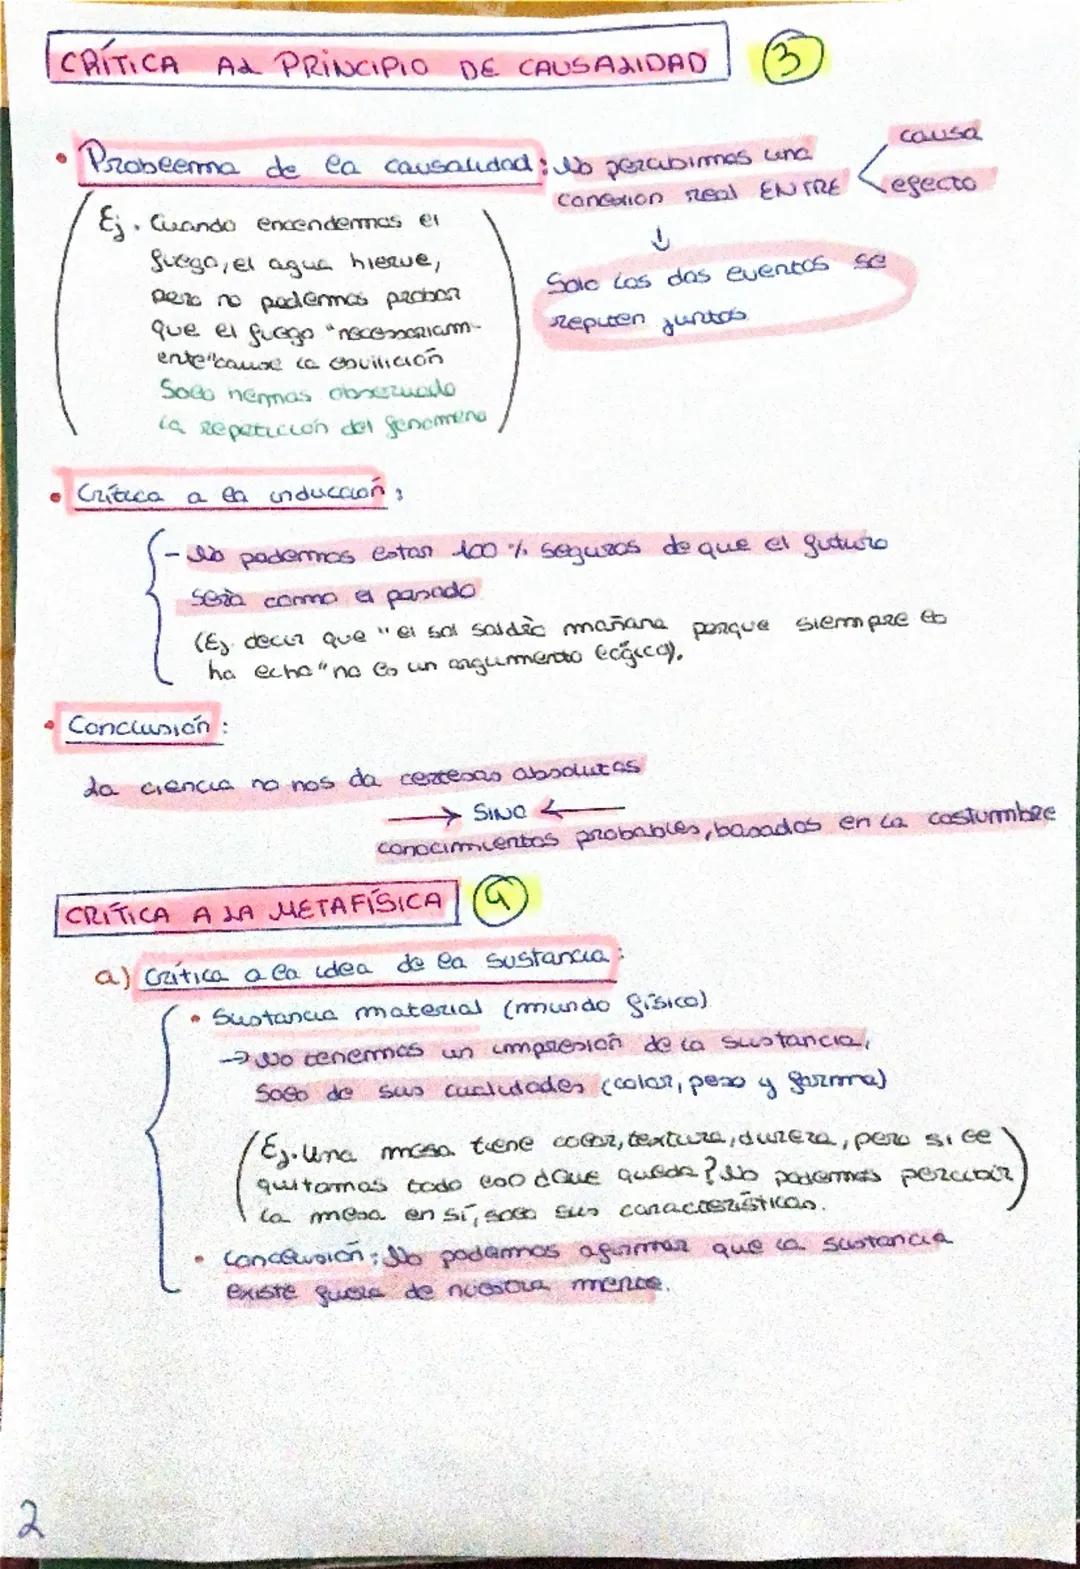 CRÍTICA AL PRINCIPIO DE CAUSALIDAD 3
• Problema de la causalidad: No percibimos una conexion real ENTRE
causa
efecto
↓
Solo los dos eventos se
repiten juntos
Ej. Cuando encendemos el
fuego, el agua hierve,
pero no podemos probar
que el fuego "necesariam-
ente" cause la ebullición
Solo hemos observado
la repetición del fenomeno
• Crítica a la inducción:
- No podemos estar 100% seguros de que el futuro
será como el pasado
(Ej. decir que "el sol saldrá mañana porque siempre lo
ha echo" no es un argumento lógico).
• Conclusión:
La ciencia no nos da certesas absolutas
→ SINO ←
conocimientos probables, basados en la costumbre
CRÍTICA A LA METAFÍSICA 4
a) Crítica a la idea de la sustancia:
• Sustancia material (mundo físico)
→ No tenemos un impresión de la sustancia,
solo de sus cualidades (color, peso y forma)
Ej. Una mesa tiene color, textura, dureza, pero si le
quitamos todo eso ¿Que queda? No podemos percibir
la mesa en sí, solo sus características.
• Conclusión: No podemos afirmar que la sustancia
existe fuera de nuestra mente.
2